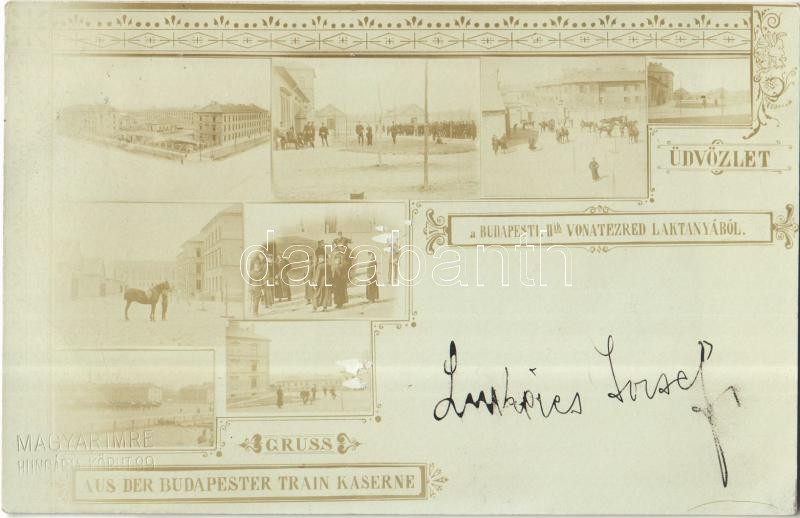 ÜDVÖZLET
a BUDAPESTI-IIik VONATEZRED LAKTANYÁBÓL.
darabanth
József
GRUSS
MAGYAR IMRE
HUNGÁRIA KÖRÚT 99
AUS DER BUDAPESTER TRAIN KASERNE